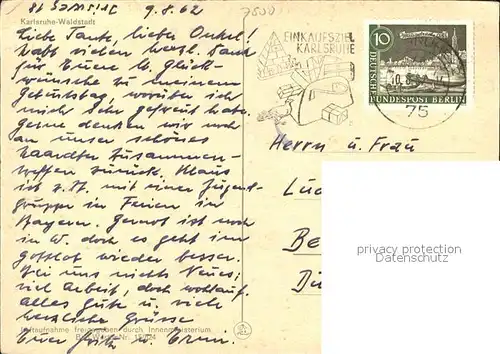 Karlsruhe-Waldstadt
9.8.62
Liebe Tante, lieber Onkel!
Habt vielen herzl. Dank
für Eure lb. Glück-
wünsche zu meinem
Geburtstag, worüber ich
mich sehr gefreut habe.
Gerne denken wir noch
an unser schönes
Haardter Zusammen-
treffen zurück. Klaus
ist z. Zt. mit einer Jugend-
gruppe in Ferien in
Bayern. Gernot ist noch
in W. doch es geht ihm
gottlob wieder besser.
Bei uns nichts Neues;
viel Arbeit, doch wohlauf.
Alles Gute u. viele
herzliche Grüsse
Eure
Luftaufnahme freigegeben durch Innenministerium
EINKAUFSZIEL
KARLSRUHE
10
DEUTSCHE
BUNDESPOST BERLIN
75
Herrn u. Frau
privacy protection
Datenschutz